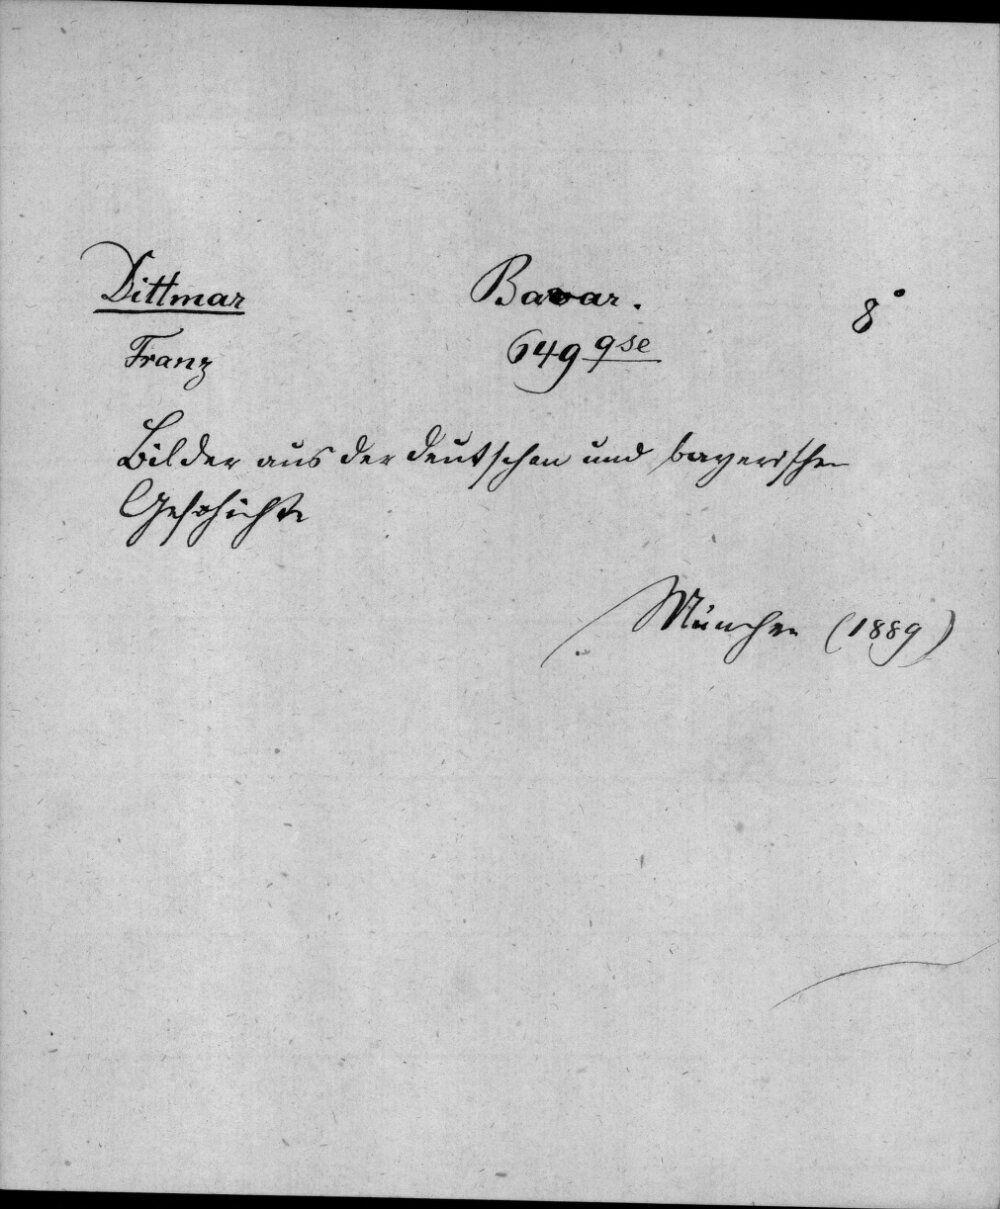 Dittmar Bavar. 8°
Franz 649 qse
Bilder aus der deutschen und bayerischen
Geschichte
München (1889)